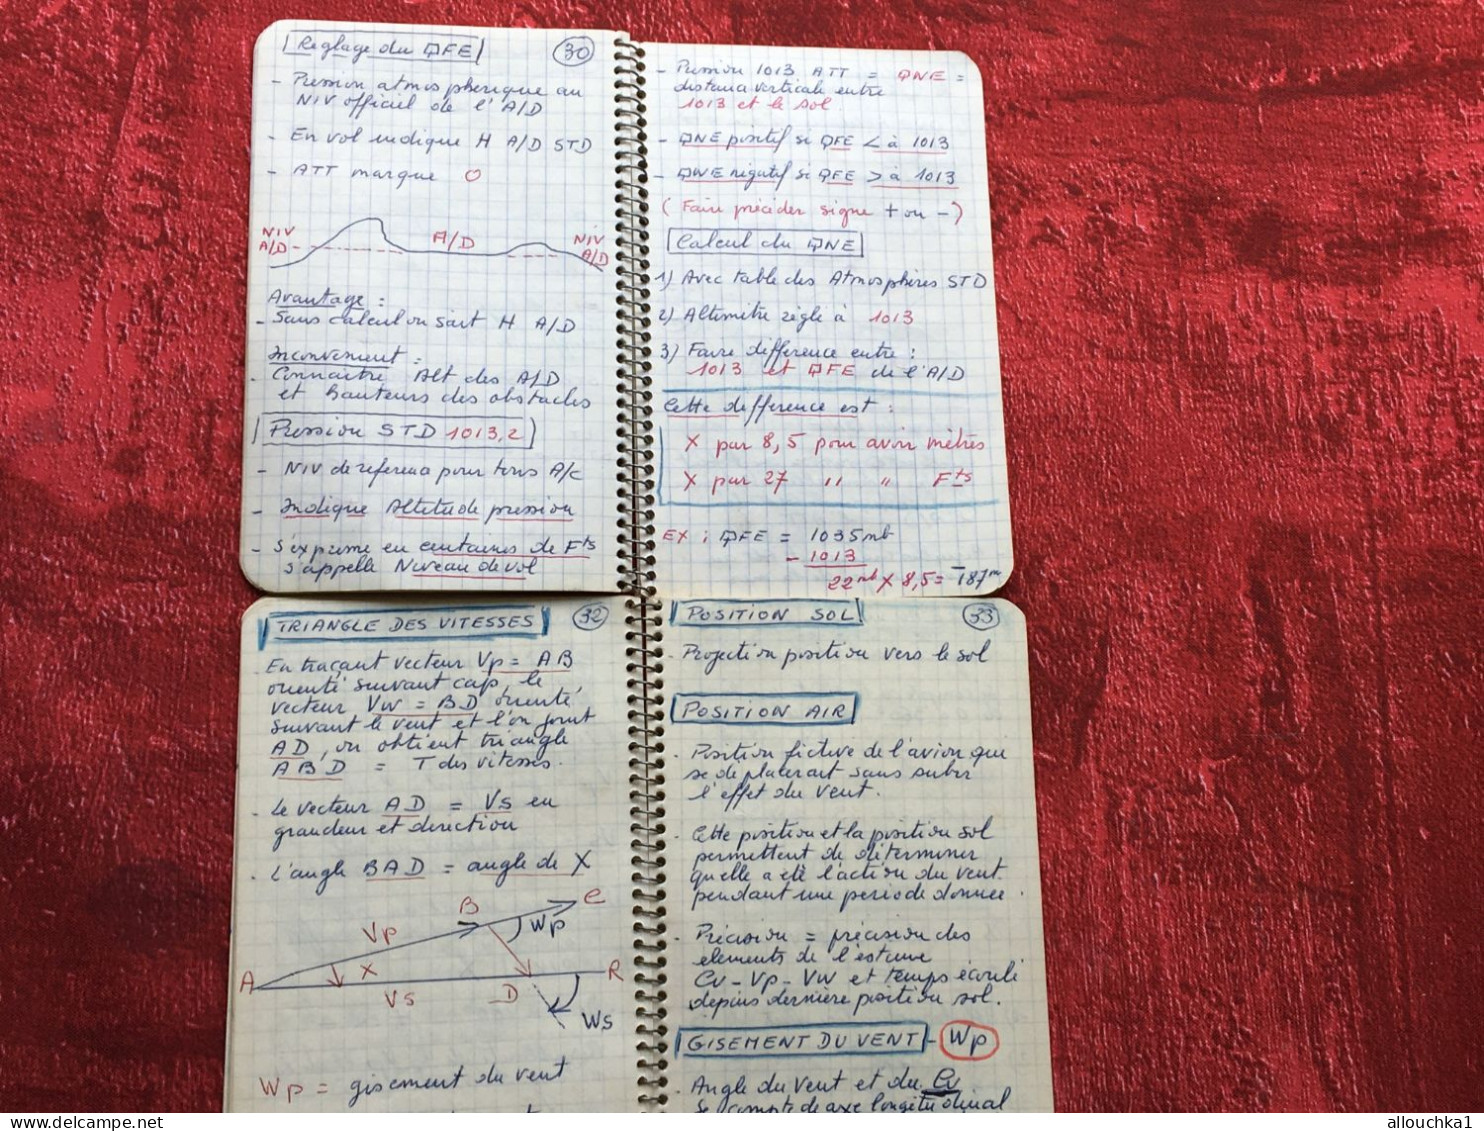 Réglage du QFE
30
- Pression atmospherique au
NIV officiel de l'A/D
- En vol indique H A/D STD
- ATT marque O
NIV
A/D
A/D
NIV
A/D
Avantage :
- Sans calcul on sait H A/D
Inconvenient :
- Connaitre Alt des A/D
et hauteurs des obstacles
Pression STD 1013,2
- NIV de reference pour tous A/C
- Indique Altitude pression
- S'exprime en centaines de Fts
s'appelle Niveau de vol
- Pression 1013 ATT = QNE =
distance verticale entre
1013 et le sol
- QNE positif si QFE < à 1013
- QNE négatif si QFE > à 1013
( Faire précéder signe + ou - )
Calcul du QNE
1) Avec table des Atmosphères STD
2) Altimètre réglé à 1013
3) Faire difference entre :
1013 et QFE de l'A/D
Cette difference est :
X par 8,5 pour avoir mètres
X par 27 " " Fts
EX : QFE = 1035 mb
- 1013
22 mb X 8,5 = -187 m
TRIANGLE DES VITESSES
32
En traçant vecteur Vp = AB
orienté suivant cap, le
vecteur VW = BD orienté
suivant le vent et l'on joint
AD, on obtient triangle
ABD = T des vitesses.
- Le vecteur AD = Vs en
grandeur et direction
- L'angle BAD = angle de X
B
C
Vp
Wp
A
X
Vs
D
R
Ws
Wp = gisement du vent
POSITION SOL
33
- Projection position vers le sol
POSITION AIR
- Position fictive de l'avion que
se deplacerait sans subir
l'effet du vent.
- Cette position et la position sol
permettent de déterminer
quelle a été l'action du vent
pendant une periode donnee.
- Précision = précision des
elements de l'estime
Cv - Vp - VW et temps écoulé
depuis dernière position sol.
GISEMENT DU VENT - Wp
- Angle du vent et du Cv
Se compte de axe longitudinal
allouchka1